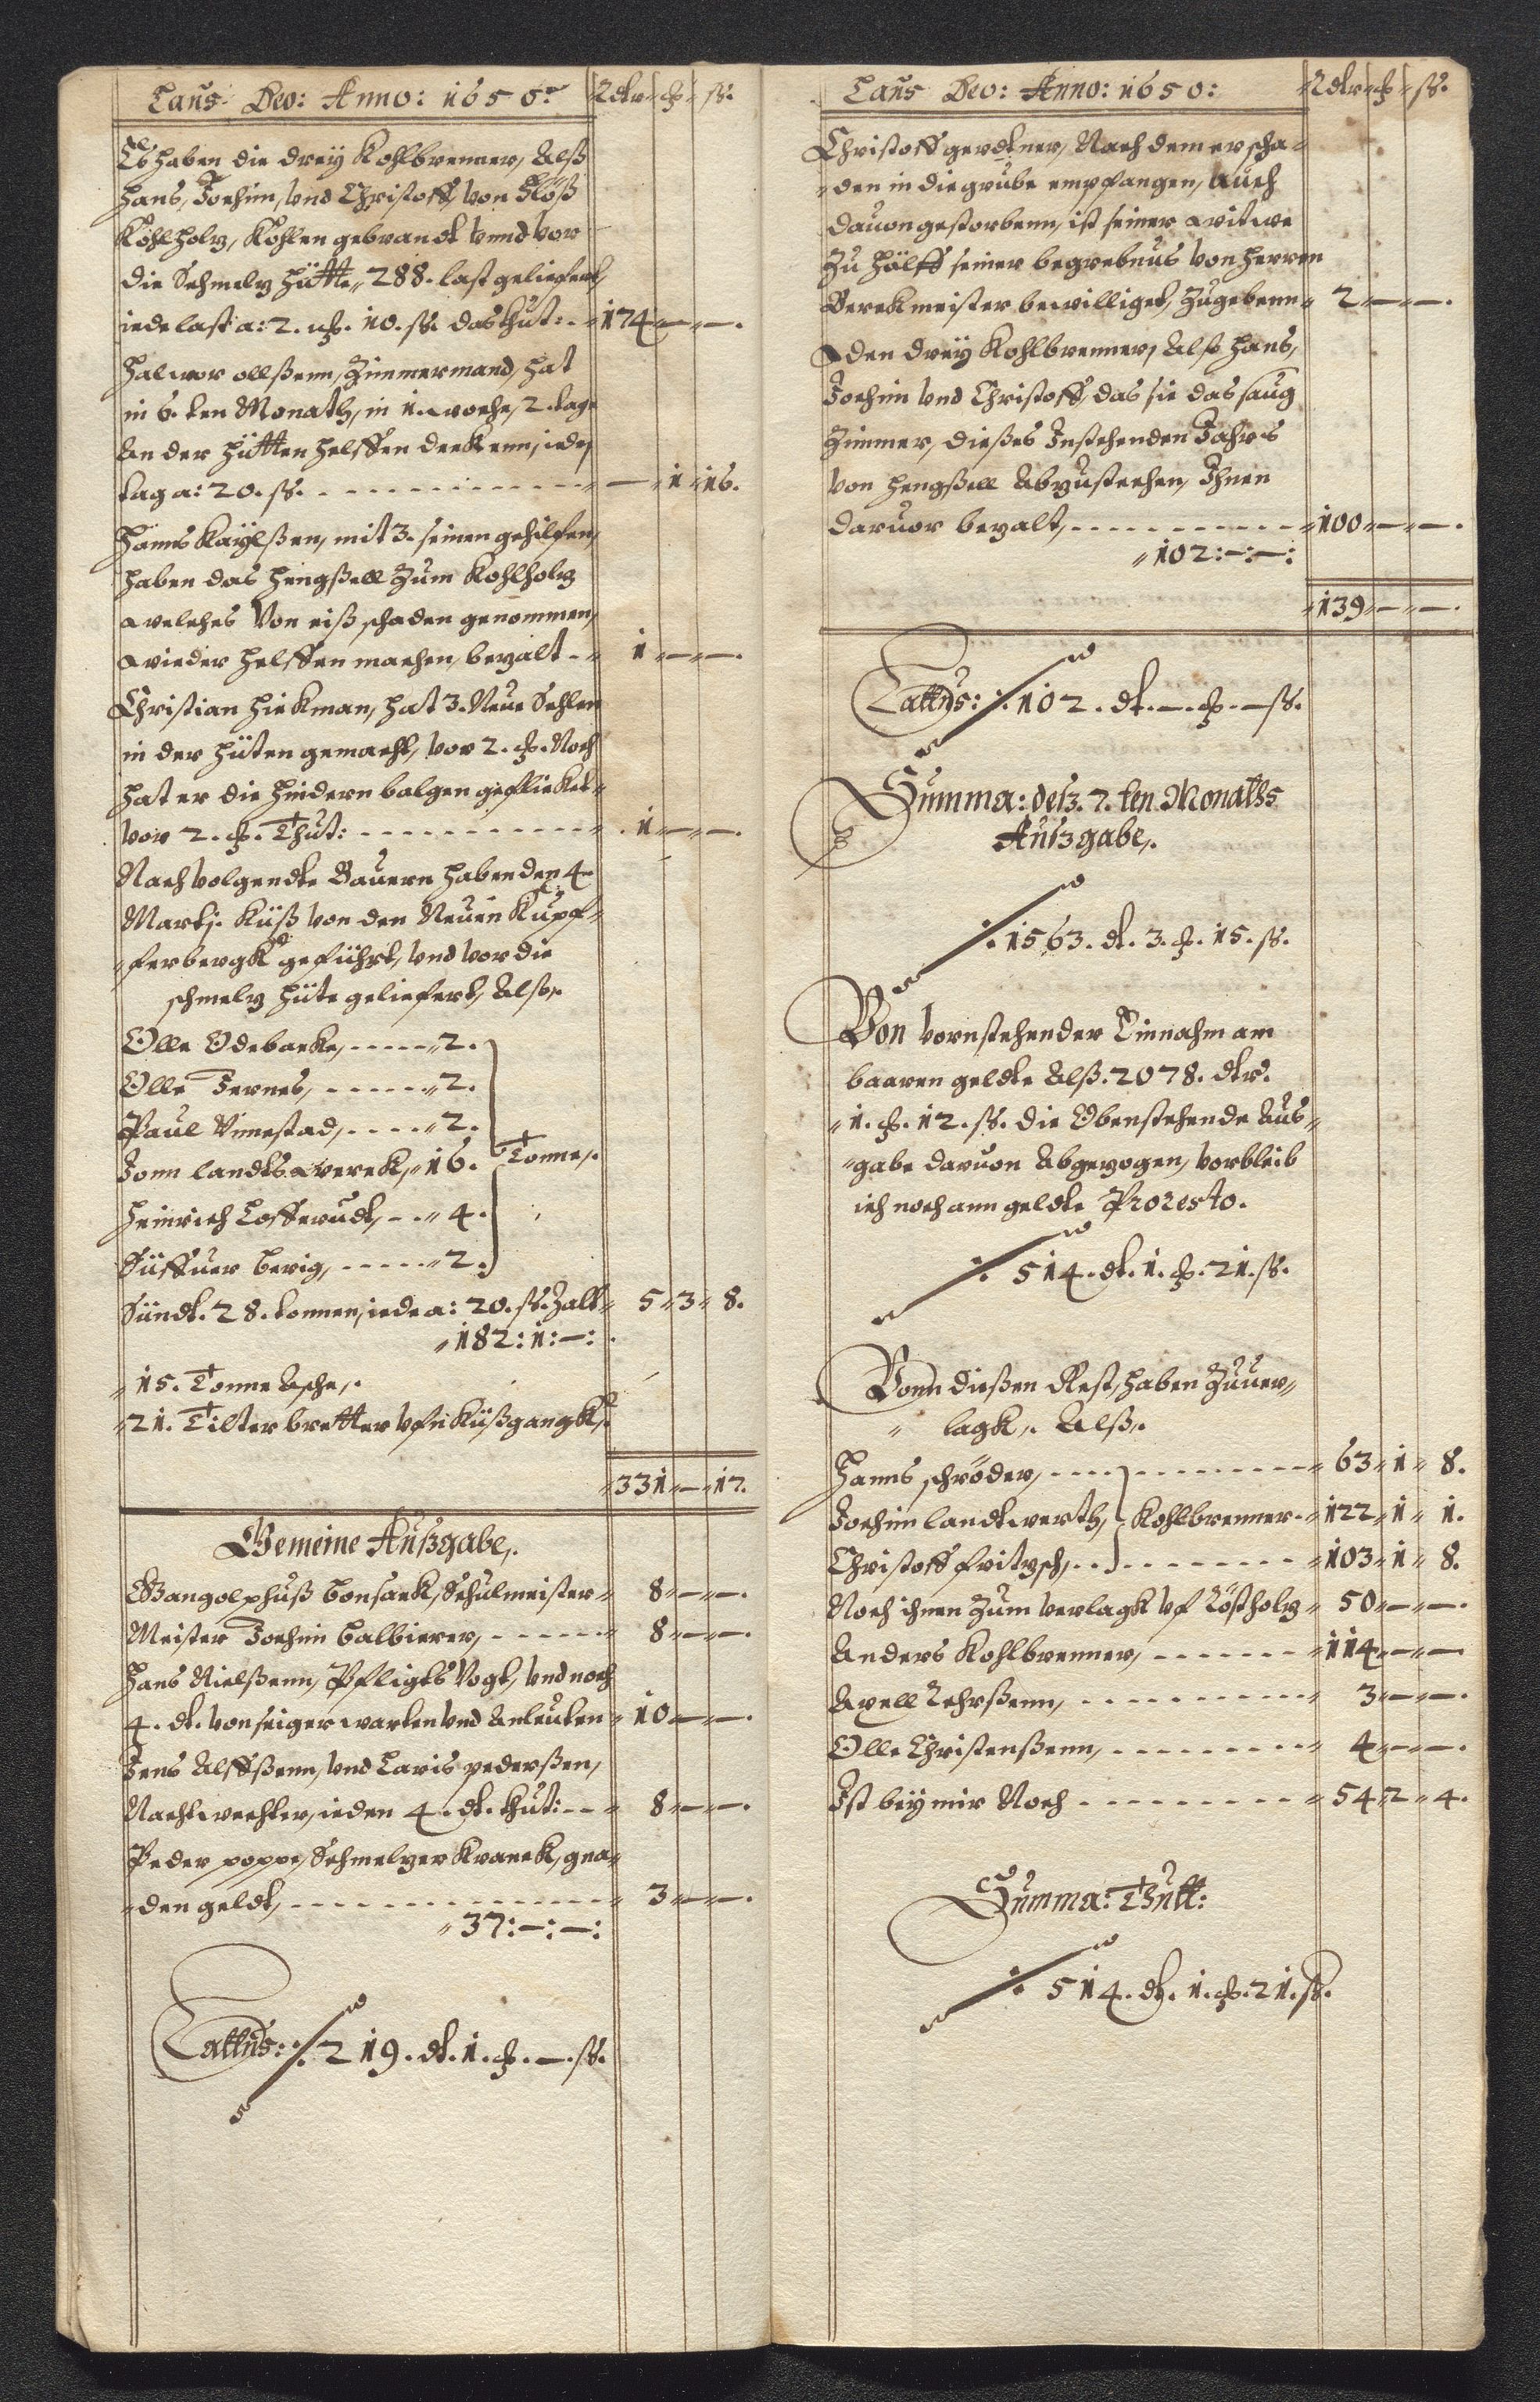 Laus Deo: Anno: 1650: Rdtr ꝑ ß.
Es haben die dreÿ Kohlbrenner, Alß
Hans, Jochim, vnd Christoff, von Flöß
Kohlholtz, Kohlen gebrandt vnnd vor
die Schmeltz Hütte, 288. last geliefert,
iede last a: 2. ꝑ. 10. ß. das thut: 174 — —.
Haluor ollßenn, Zimmermand, hat
in 6. ten Monath, in 1. woche, 2. tage
An der Hütten helffen deckenn, ieder
tag a: 20. ß. — 1 16.
Hanns Kaÿlßen, mit 3. seinen gehilfen,
haben das Hengßell Zum Kohlholtz
welches Von eiß schaden genommen,
wieder helffen machen, bezalt 1 — —.
Christian Hickman, hat 3. Neue Sehlen
in der Hüten gemacht, vor 2. ꝑ. Noch
hat er die Hindern balgen geflicket
vor 2. ꝑ. Thut: 1 — —.
Nach volgendte Bauern haben den 4
Martj. Küß von den Neuen Kupf-
ferbergk geführt, vnd vor die
schmeltz Hüte geliefert, Alß,.
Olle Odebacke, 2.
Olle Jernes, 2.
Paul Vinestad, 2.
Jonn landtswerck, 16. Tonne,.
Heinrich Lofferudt, 4.
Süffuer Berig, 2.
Sündt. 28. tonnen, iede a: 20. ß. Zalt 5 3 8.
182: 1: —:
15. Tonne Asche,.
21. Tilter bretter vfn Küßgangk,.
331 — 17.
Gemeine Außgabe,.
Wangolphuß Bonsack, Schulmeister 8 — —.
Meister Jochim Balbierer, 8 — —.
Hans Nielßenn, Pfligts Vogt, vnd noch
4. dt. von seiger warten vnd Anleuten 10 — —.
Jens Alffßenn, vnd Laris pederßen,
Nachtwechter, ieden 4. dt. thut: 8 — —.
Peder poppe, Schmeltzer Kranck, gna-
den geldt, 3 — —.
37: —: —:
Lattus: ⁒ 219. dt. 1. ꝑ. — ß.
Laus Deo: Anno: 1650: Rdtr ꝑ ß.
Christoff gerdtner, Nach dem er scha-
den in die grube empfangen, Auch
dauon gestorbenn, ist seiner witwe
Zu Hülff seiner begrebnus von Herren
Berckmeister bewilliget, Zugebenn 2 — —.
den dreÿ Kohlbrenner, Alß Hans,
Jochim vnd Christoff, das sie das saug
Zimmer, dießes Instehenden Jahrs
von Hengßell Abzustechen, Ihnen
daruor bezalt, 100 — —.
102: —: —:
139 — —.
Lattus: ⁒ 102. dt. — ꝑ. — ß.
Summa: desz. 7. ten Monaths
Auszgabe,.
⁒ 1563. dt. 3. ꝑ. 15. ß.
Von vornstehender Einnahm am
baaren geldte Alß. 2078. dtr.
1. ꝑ. 12. ß. die Obenstehende Aus-
gabe daruon Abgezogen, vorbleib
ich noch ann geldte Pro resto.
⁒ 514. dt. 1. ꝑ. 21. ß.
Vonn dießen Rest, haben Zuuer-
lagk,. Alß,.
Hanns schröder, 63 1 8.
Jochim landtwerth, Kohlbrenner 122 1 1.
Christoff fritzsch, 103 1 8.
Noch ihnen Zum verlagk vf Röstholtz 50 — —.
Anders Kohlbrenner, 114 — —
Axell Lehrßenn, 3 — —.
Olle Christenßenn, 4 — —.
Ist beÿ mir Noch 54 2 4.
Summa: Thutt:
⁒ 514. dt. 1. ꝑ. 21. ß.